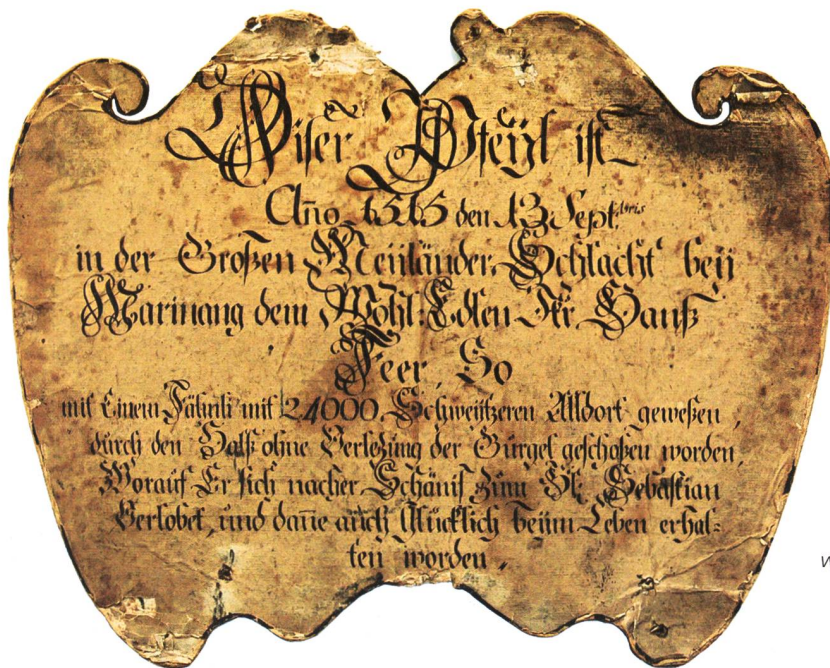 Diser Pfeÿl ist
Año 1515 den 13 Sept.bris
in der Großen Meÿländer Schlacht beÿ
Marinang dem Wohl: Edlen Hr. Hanß
Feer, So
mit Einem Fähnli mit 24000. Schweitzeren Alldort geweßen,
durch den Halß ohne Verletzung der Gurgel geschoßen worden,
Worauf Er sich nacher Schänis zum Hl: Sebastian
Verlobet, und dañe auch Glücklich beÿm Leben erhal=
ten worden.
W